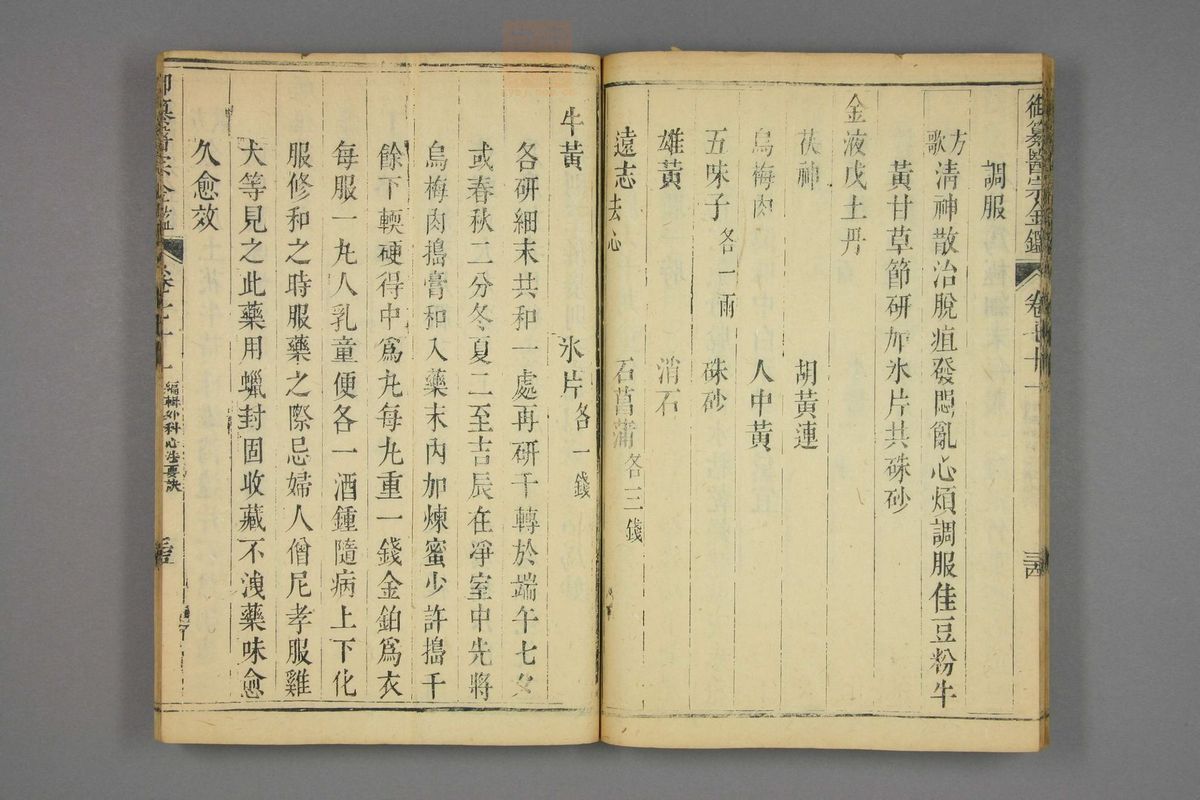 御纂醫宗金鑑 卷七十一 三古
調服
方歌 清神散治脫疽發悶亂心煩調服佳豆粉牛
黃甘草節研加氷片共硃砂
金液戊土丹
茯神 胡黃連
烏梅肉 人中黃
五味子各一兩 硃砂
雄黃 消石
遠志去心 石菖蒲各三錢
牛黃 氷片各一錢
各研細末共和一處再研千轉於端午七夕
或春秋二分冬夏二至吉辰在凈室中先將
烏梅肉搗膏和入藥末內加煉蜜少許搗千
餘下輭硬得中爲丸每丸重一錢金鉑爲衣
每服一丸人乳童便各一酒鍾隨病上下化
服修和之時服藥之際忌婦人僧尼孝服雞
犬等見之此藥用蠟封固收藏不洩藥味愈
久愈效
御纂醫宗金鑑 卷七十一 編輯外科心法要訣